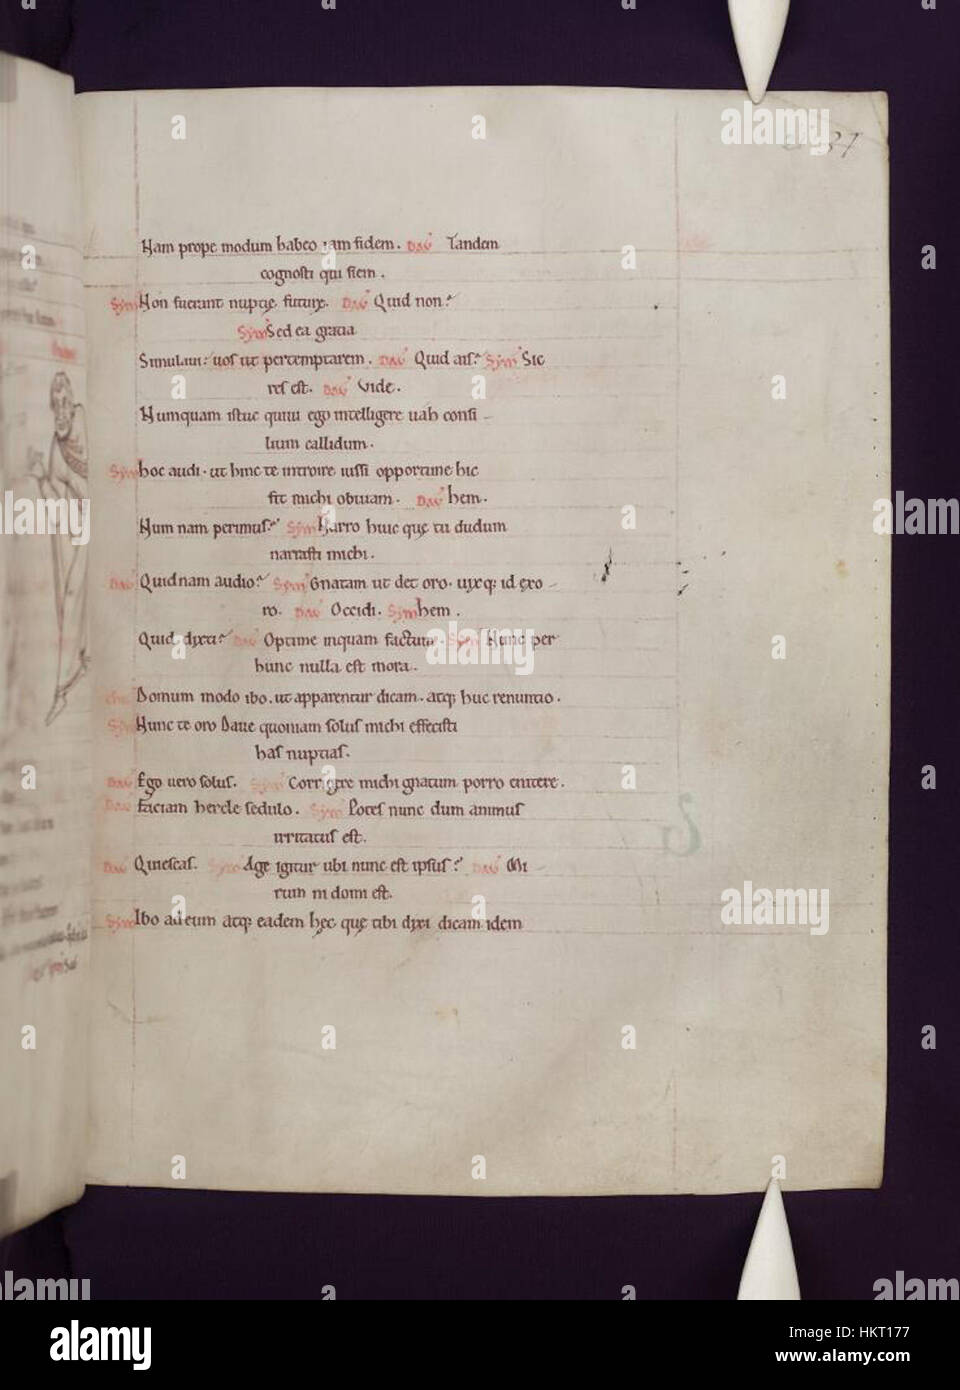 37
Nam prope modum habeo iam fidem. Dav' Tandem
cognosti qui siem.
Sym' Non fuerant nuptię futurę. Dav' Quid non?
Sym' Sed ea gratia
Simulaui? uos ut pertemptarem. Dav' Quid ais? Sym' Sic
res est. Dav' Vide.
Numquam istuc quiui ego intelligere uah consi-
lium callidum.
Sym' hoc audi. ut hinc te introire iussi opportune hic
fit michi obuiam. Dav' hem.
Num nam perimus? Sym' Narro huic quę tu dudum
narrasti michi.
Dav' Quidnam audio? Sym' Gnatam ut det oro. uixq; id exo-
ro. Dav' Occidi. Sym' hem.
Quid dixti? Dav' Optime inquam factum. Sym' Nunc per
hunc nulla est mora.
chr' Domum modo ibo. ut apparentur dicam. atq; huc renuntio.
Sym' Nunc te oro Daue quoniam solus michi effecisti
has nuptias.
Dav' Ego uero solus. Sym' Corrigere michi gnatum porro enitere.
Dav' Faciam hercle sedulo. Sym' Potes nunc dum animus
irritatus est.
Dav' Quiescas. Sym' Age igitur ubi nunc est ipsus? Dav' Mi-
rum ni domi est.
Sym' Ibo ad eum atq; eadem hęc quę tibi dixi dicam idem
alamy
Image ID: HKT177
www.alamy.com